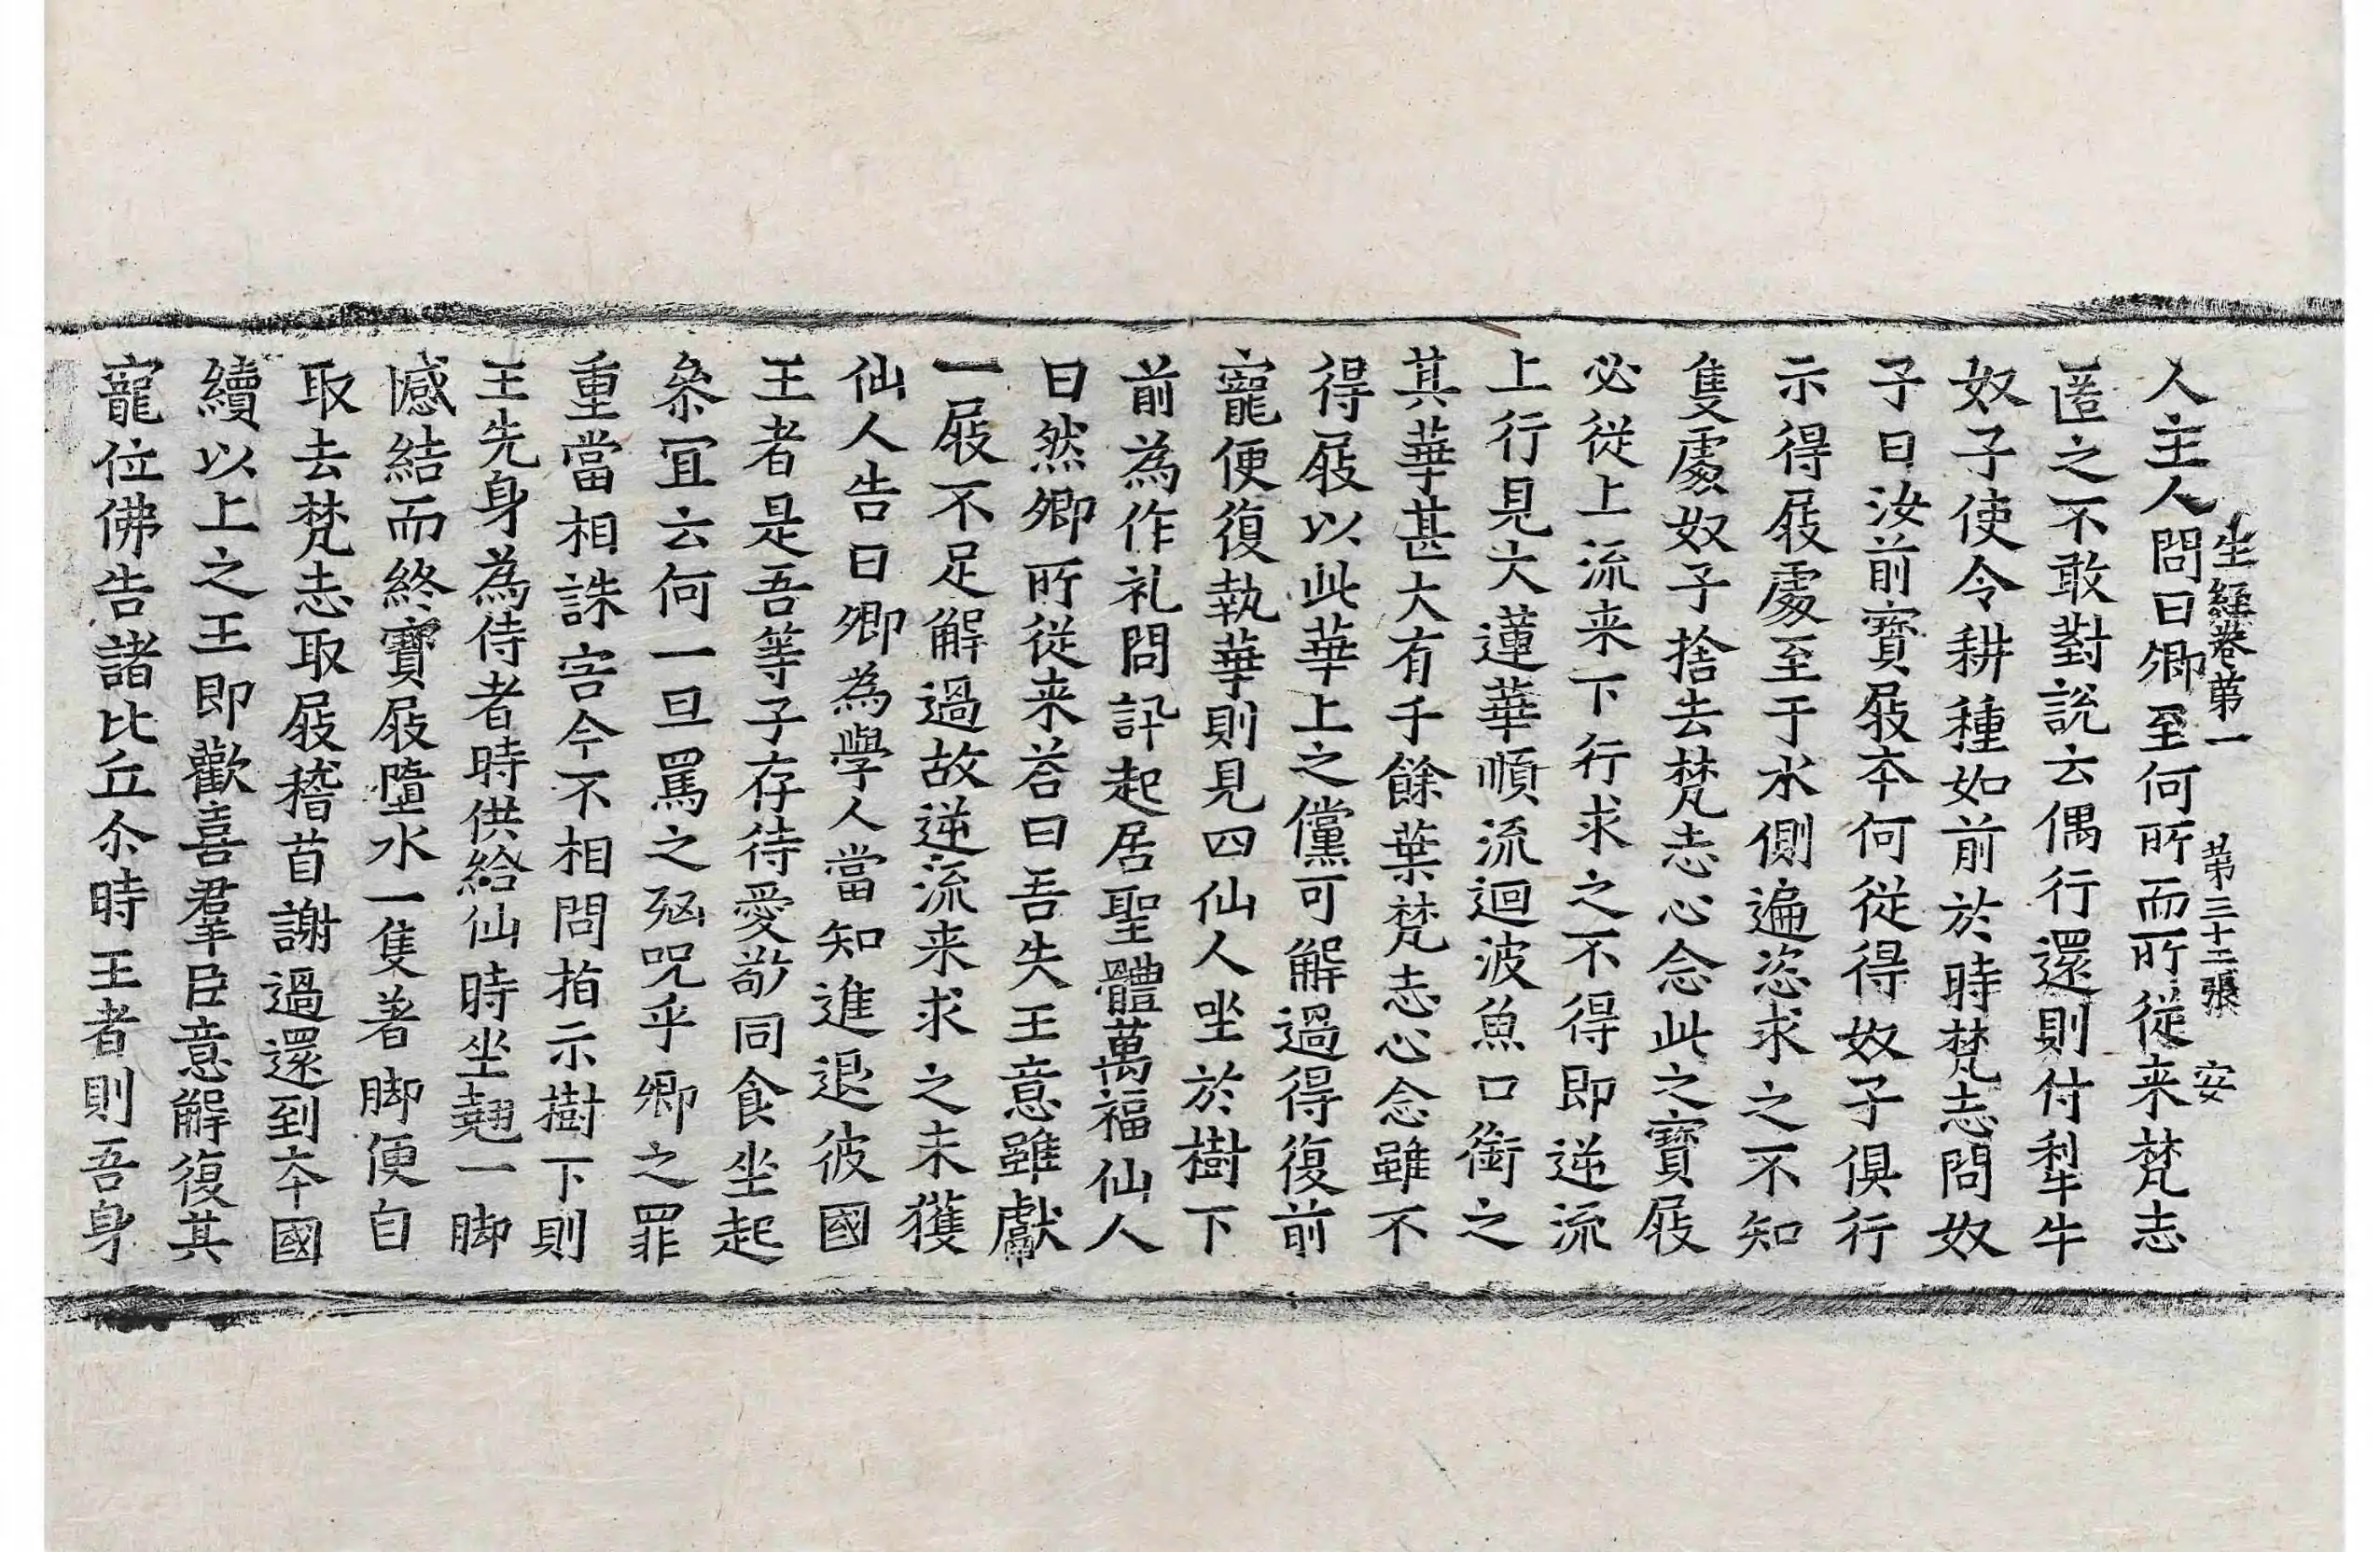 生經卷第一 第三十二張 安
人主人問曰卿至何所而所從来梵志
匿之不敢對說云偶行還則付犁牛
奴子使令耕種如前於時梵志問奴
子曰汝前寶屐夲何從得奴子俱行
示得屐處至于水側遍恣求之不知
隻處奴子捨去梵志心念此之寶屐
必從上流来下行求之不得即逆流
上行見大蓮華順流迴波魚口銜之
其華甚大有千餘葉梵志心念雖不
得屐以此華上之儻可解過得復前
寵便復執華則見四仙人坐於樹下
前為作礼問訊起居聖體萬福仙人
曰然卿所從来荅曰吾失王意雖獻
一屐不足解過故逆流来求之未獲
仙人告曰卿為學人當知進退彼國
王者是吾等子存待愛敬同食坐起
叅冝云何一旦罵之𢐅呪乎卿之罪
重當相誅害今不相問指示樹下則
王先身為侍者時供給仙時坐翹一脚
憾結而終寶屐墮水一隻著脚便自
取去梵志取屐稽首謝過還到夲國
續以上之王即歡喜羣臣意解復其
寵位佛告諸比丘尒時王者則吾身